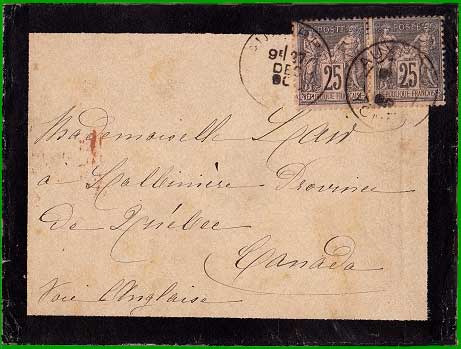 POSTE POSTE
25 25
REPUBLIQUE FRANÇAISE REPUBLIQUE FRANÇAISE
9E/
DEC
Mademoiselle
a Lotbinière Province
de Québec
Canada
Voie Anglaise